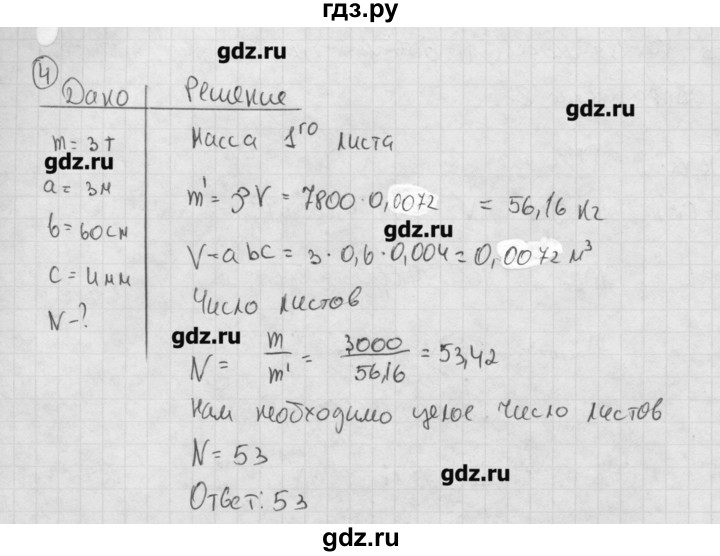 гдз.ру
gdz.ru
4
Дано
Решение
gdz.ru
Масса 1го листа
m = 3 т
gdz.ru
a = 3 м
m' = ρV = 7800 · 0,0072 = 56,16 кг
gdz.ru
b = 60 см
V = abc = 3 · 0,6 · 0,004 = 0,0072 м³
c = 4 мм
Число листов
N - ?
gdz.ru
N = m/m' = 3000/56,16 = 53,42
Нам необходимо целое число листов
N = 53
gdz.ru
Ответ: 53
gdz.ru